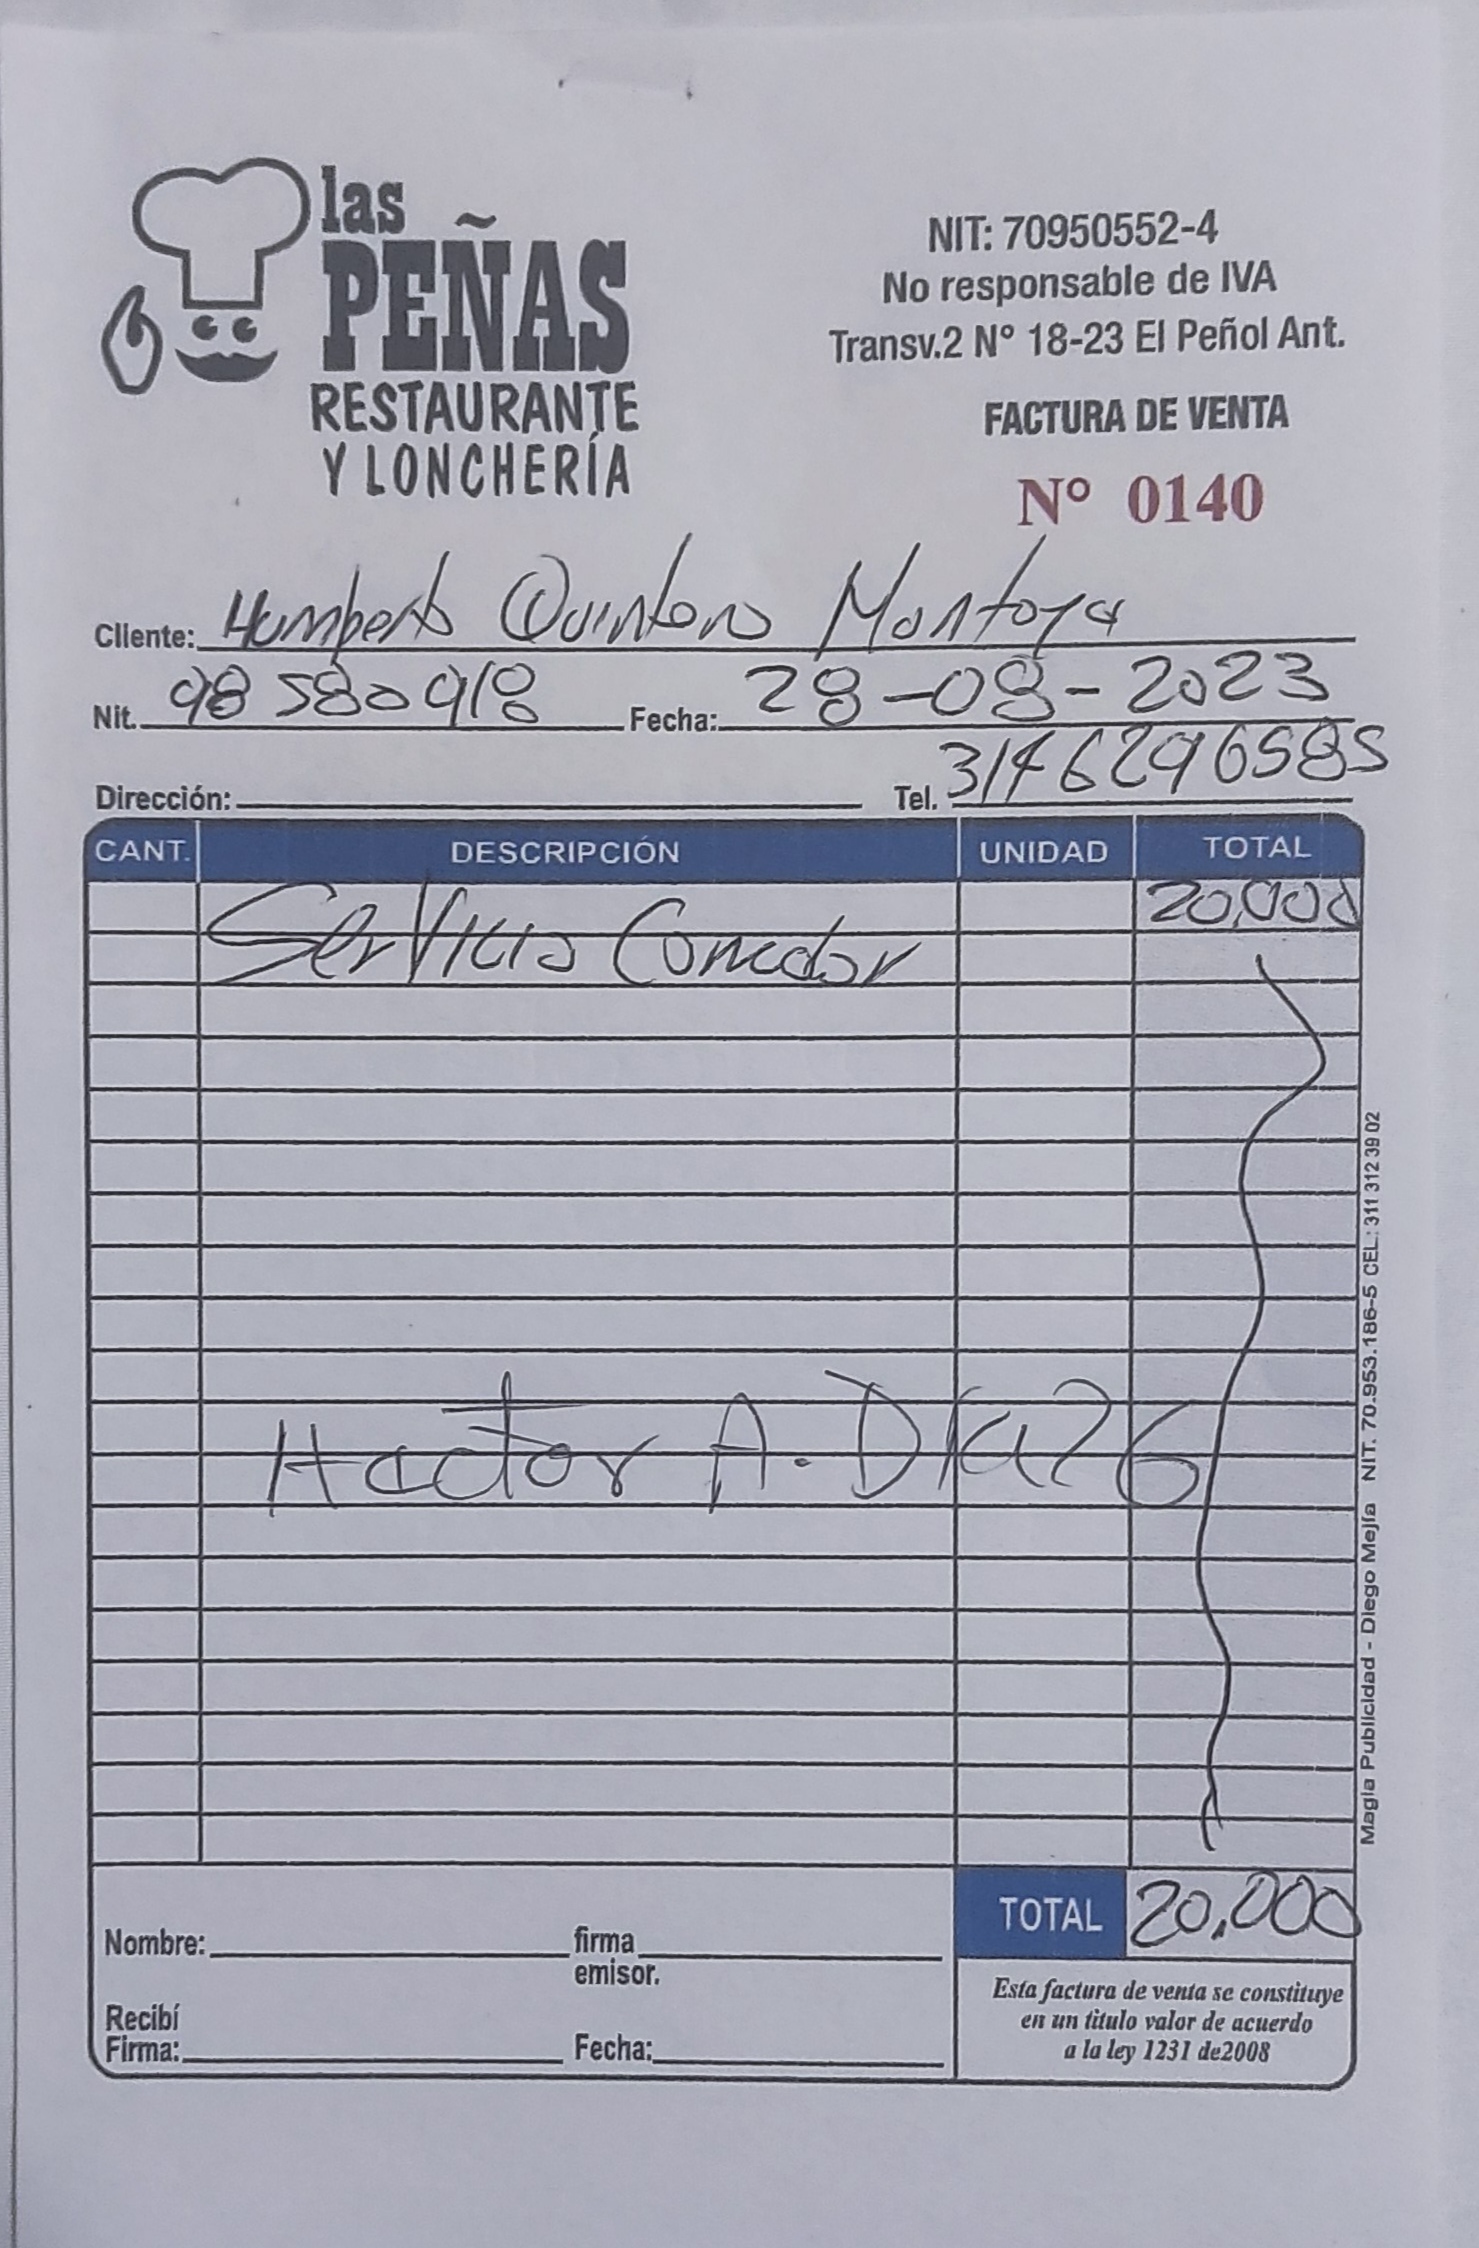 las
PEÑAS
RESTAURANTE
Y LONCHERÍA
NIT: 70950552-4
No responsable de IVA
Transv.2 N° 18-23 El Peñol Ant.
FACTURA DE VENTA
N° 0140
Cliente: Humberto Quintero Montoya
Nit. 98580918 Fecha: 28-08-2023
Dirección: Tel. 3146296585
CANT. DESCRIPCIÓN UNIDAD TOTAL
Servicio Comedor 20,000
Hector A. Diaz G
TOTAL 20,000
Nombre: firma
emisor.
Recibí
Firma: Fecha:
Esta factura de venta se constituye
en un titulo valor de acuerdo
a la ley 1231 de2008
Magia Publicidad - Diego Mejía NIT. 70.953.186-5 CEL.: 311 312 39 02